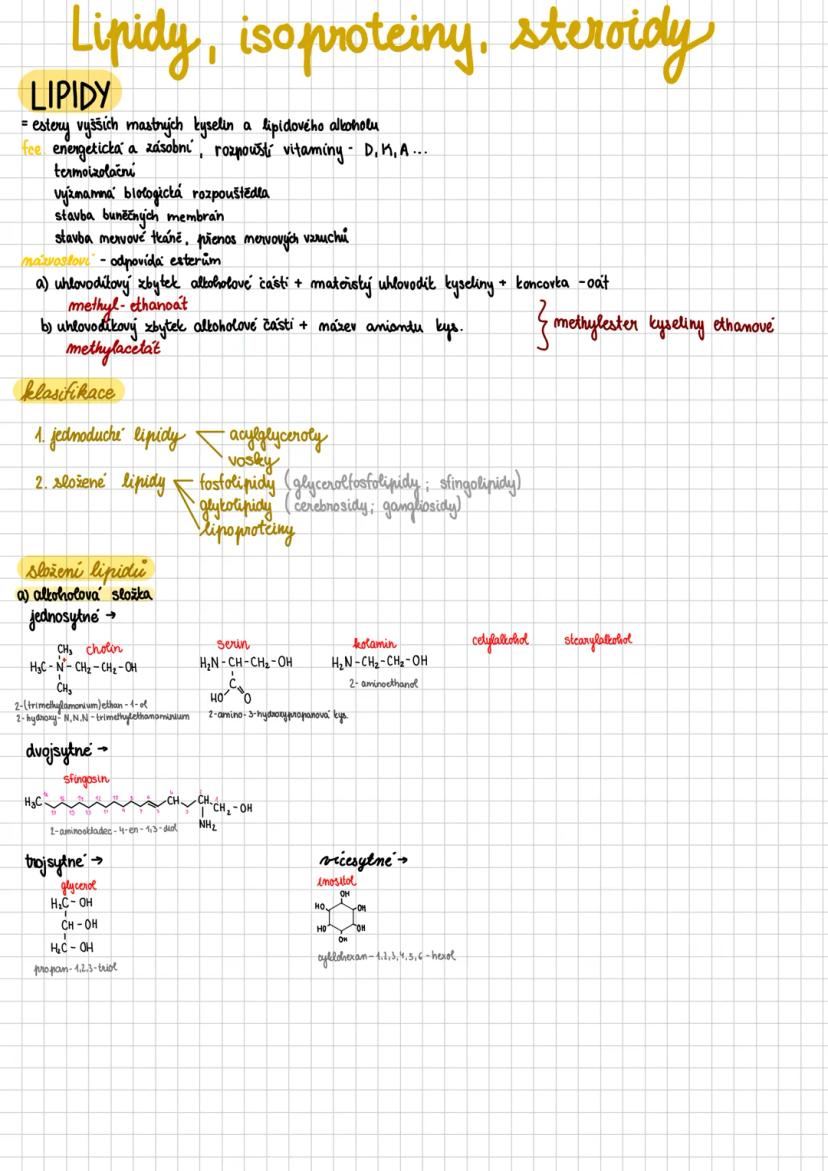 Lipidy, isoproteiny, steroidy
LIPIDY
= estery vyšších mastných kyselin a lipidového alkoholu
fce: energetická a zásobní, rozpouští vitamíny - D, K, A ...
termoizolační
významná biologická rozpouštědla
stavba buněčných membrán
stavba nervové tkáně, přenos nervových vzruchů
názvosloví - odpovídá esterům
a) uhlovodíkový zbytek alkoholové části + mateřský uhlovodík kyseliny + koncovka -oát
methyl-ethanoát
b) uhlovodíkový zbytek alkoholové části + název aniondu kys.
} methylester kyseliny ethanové
methylacetát
klasifikace
1. jednoduché lipidy
acylglyceroly
vosky
2. složené lipidy
fosfolipidy (glycerolfosfolipidy; sfingolipidy)
glykolipidy (cerebrosidy; gangliosidy)
lipoproteiny
složení lipidů
a) alkoholová složka
jednosytné →
cholin
CH₃
H₃C - N⁺ - CH₂ - CH₂ - OH
CH₃
2-(trimethylamonium)ethan-1-ol
2-hydroxy-N,N,N-trimethylethanaminium
serin
H₂N - CH - CH₂ - OH
C
HO O
2-amino-3-hydroxypropanová kys.
kolamin
H₂N - CH₂ - CH₂ - OH
2-aminoethanol
cetylalkohol
stearylalkohol
dvojsytné →
sfingosin
H₃C CH CH CH₂ - OH
NH₂
2-aminooktadec-4-en-1,3-diol
trojsytné →
glycerol
H₂C - OH
CH - OH
H₂C - OH
propan-1,2,3-triol
vícesytné →
inositol
OH
HO OH
HO OH
OH
cyklohexan-1,2,3,4,5,6-hexol